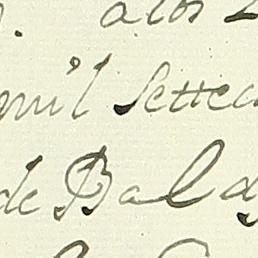 alos
mil Settec
de Bald